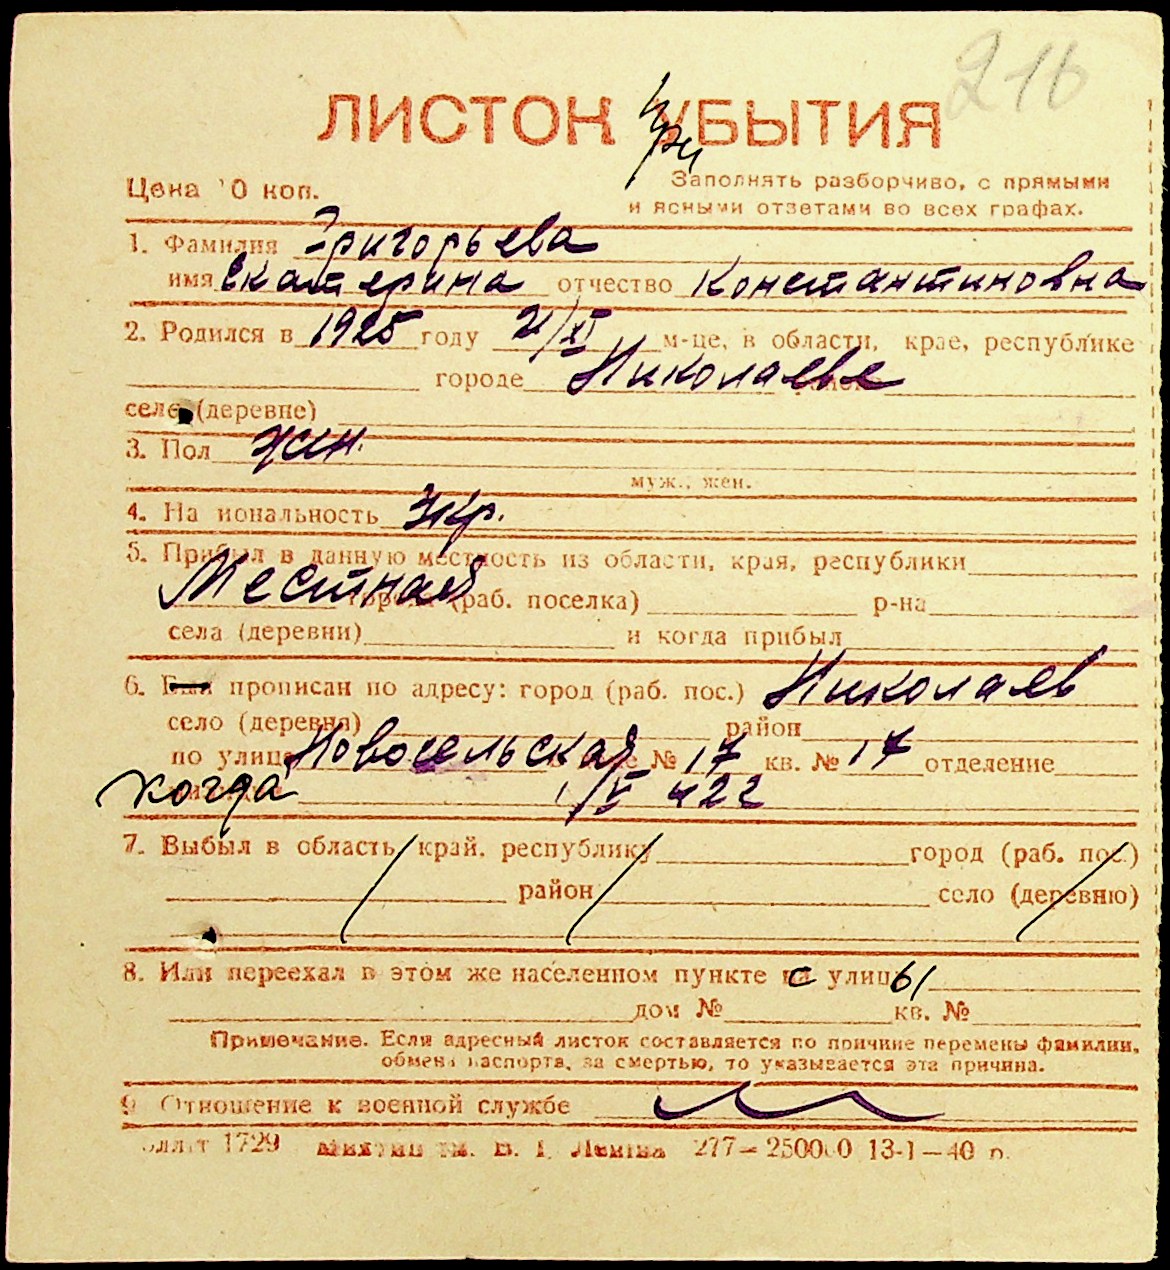 216
ЛИСТОК УБЫТИЯ
при
Цена 10 коп.
Заполнять разборчиво, с прямыми
и ясными ответами во всех графах.
1. Фамилия Григорьева
имя Екатерина отчество Константиновна
2. Родился в 1925 году 21/XI м-це, в области, крае, республике
городе Николаеве
селе (деревне)
3. Пол жен.
муж., жен.
4. Национальность укр.
5. Прибыл в данную местность из области, края, республики
Местная города (раб. поселка) р-на
села (деревни) и когда прибыл
6. Был прописан по адресу: город (раб. пос.) Николаев
село (деревня) район
по улице Новосельская № 17 кв. № 17 отделение
когда 1/V 422
7. Выбыл в область, край, республику город (раб. пос.)
район село (деревню)
8. Или переехал в этом же населенном пункте с улицы
дом № кв. №
Примечание. Если адресный листок составляется по причине перемены фамилии,
обмена паспорта, за смертью, то указывается эта причина.
9. Отношение к военной службе
1729 В. І. Леніна 277—250000 13-I—40 р.